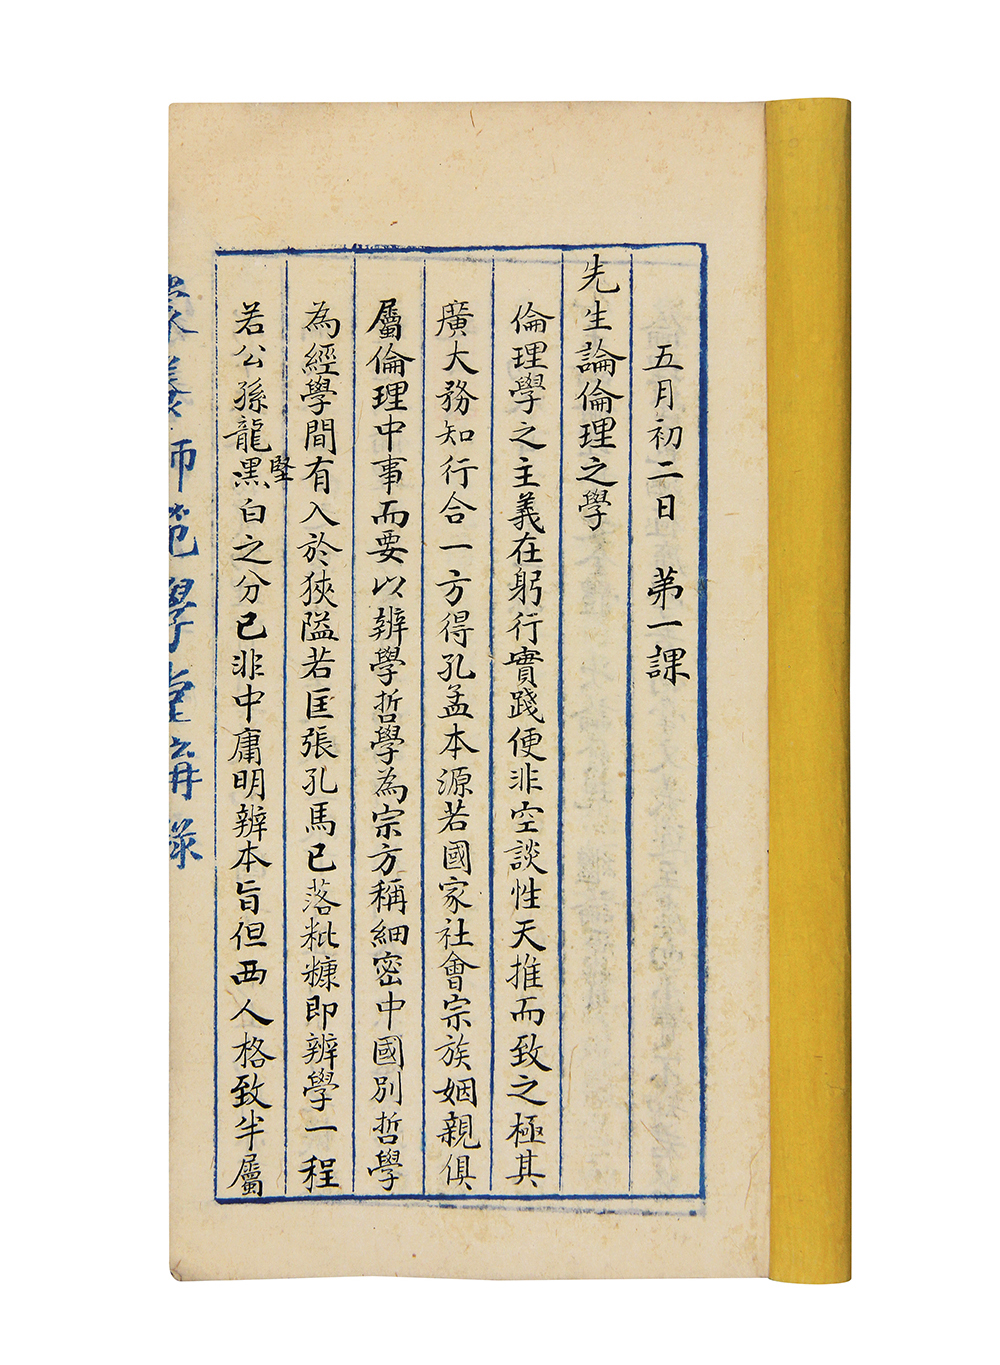 五月初二日　弟一課
先生論倫理之學
倫理學之主義在躬行實踐便非空談性天推而致之極其
廣大務知行合一方得孔孟本源若國家社會宗族姻親俱
屬倫理中事而要以辨學哲學為宗方稱細密中國別哲學
為經學間有入於狹隘若匡張孔馬已落粃糠即辨學一程
若公孫龍堅黑白之分已非中庸明辨本旨但西人格致半屬
蒙養師範學堂講錄